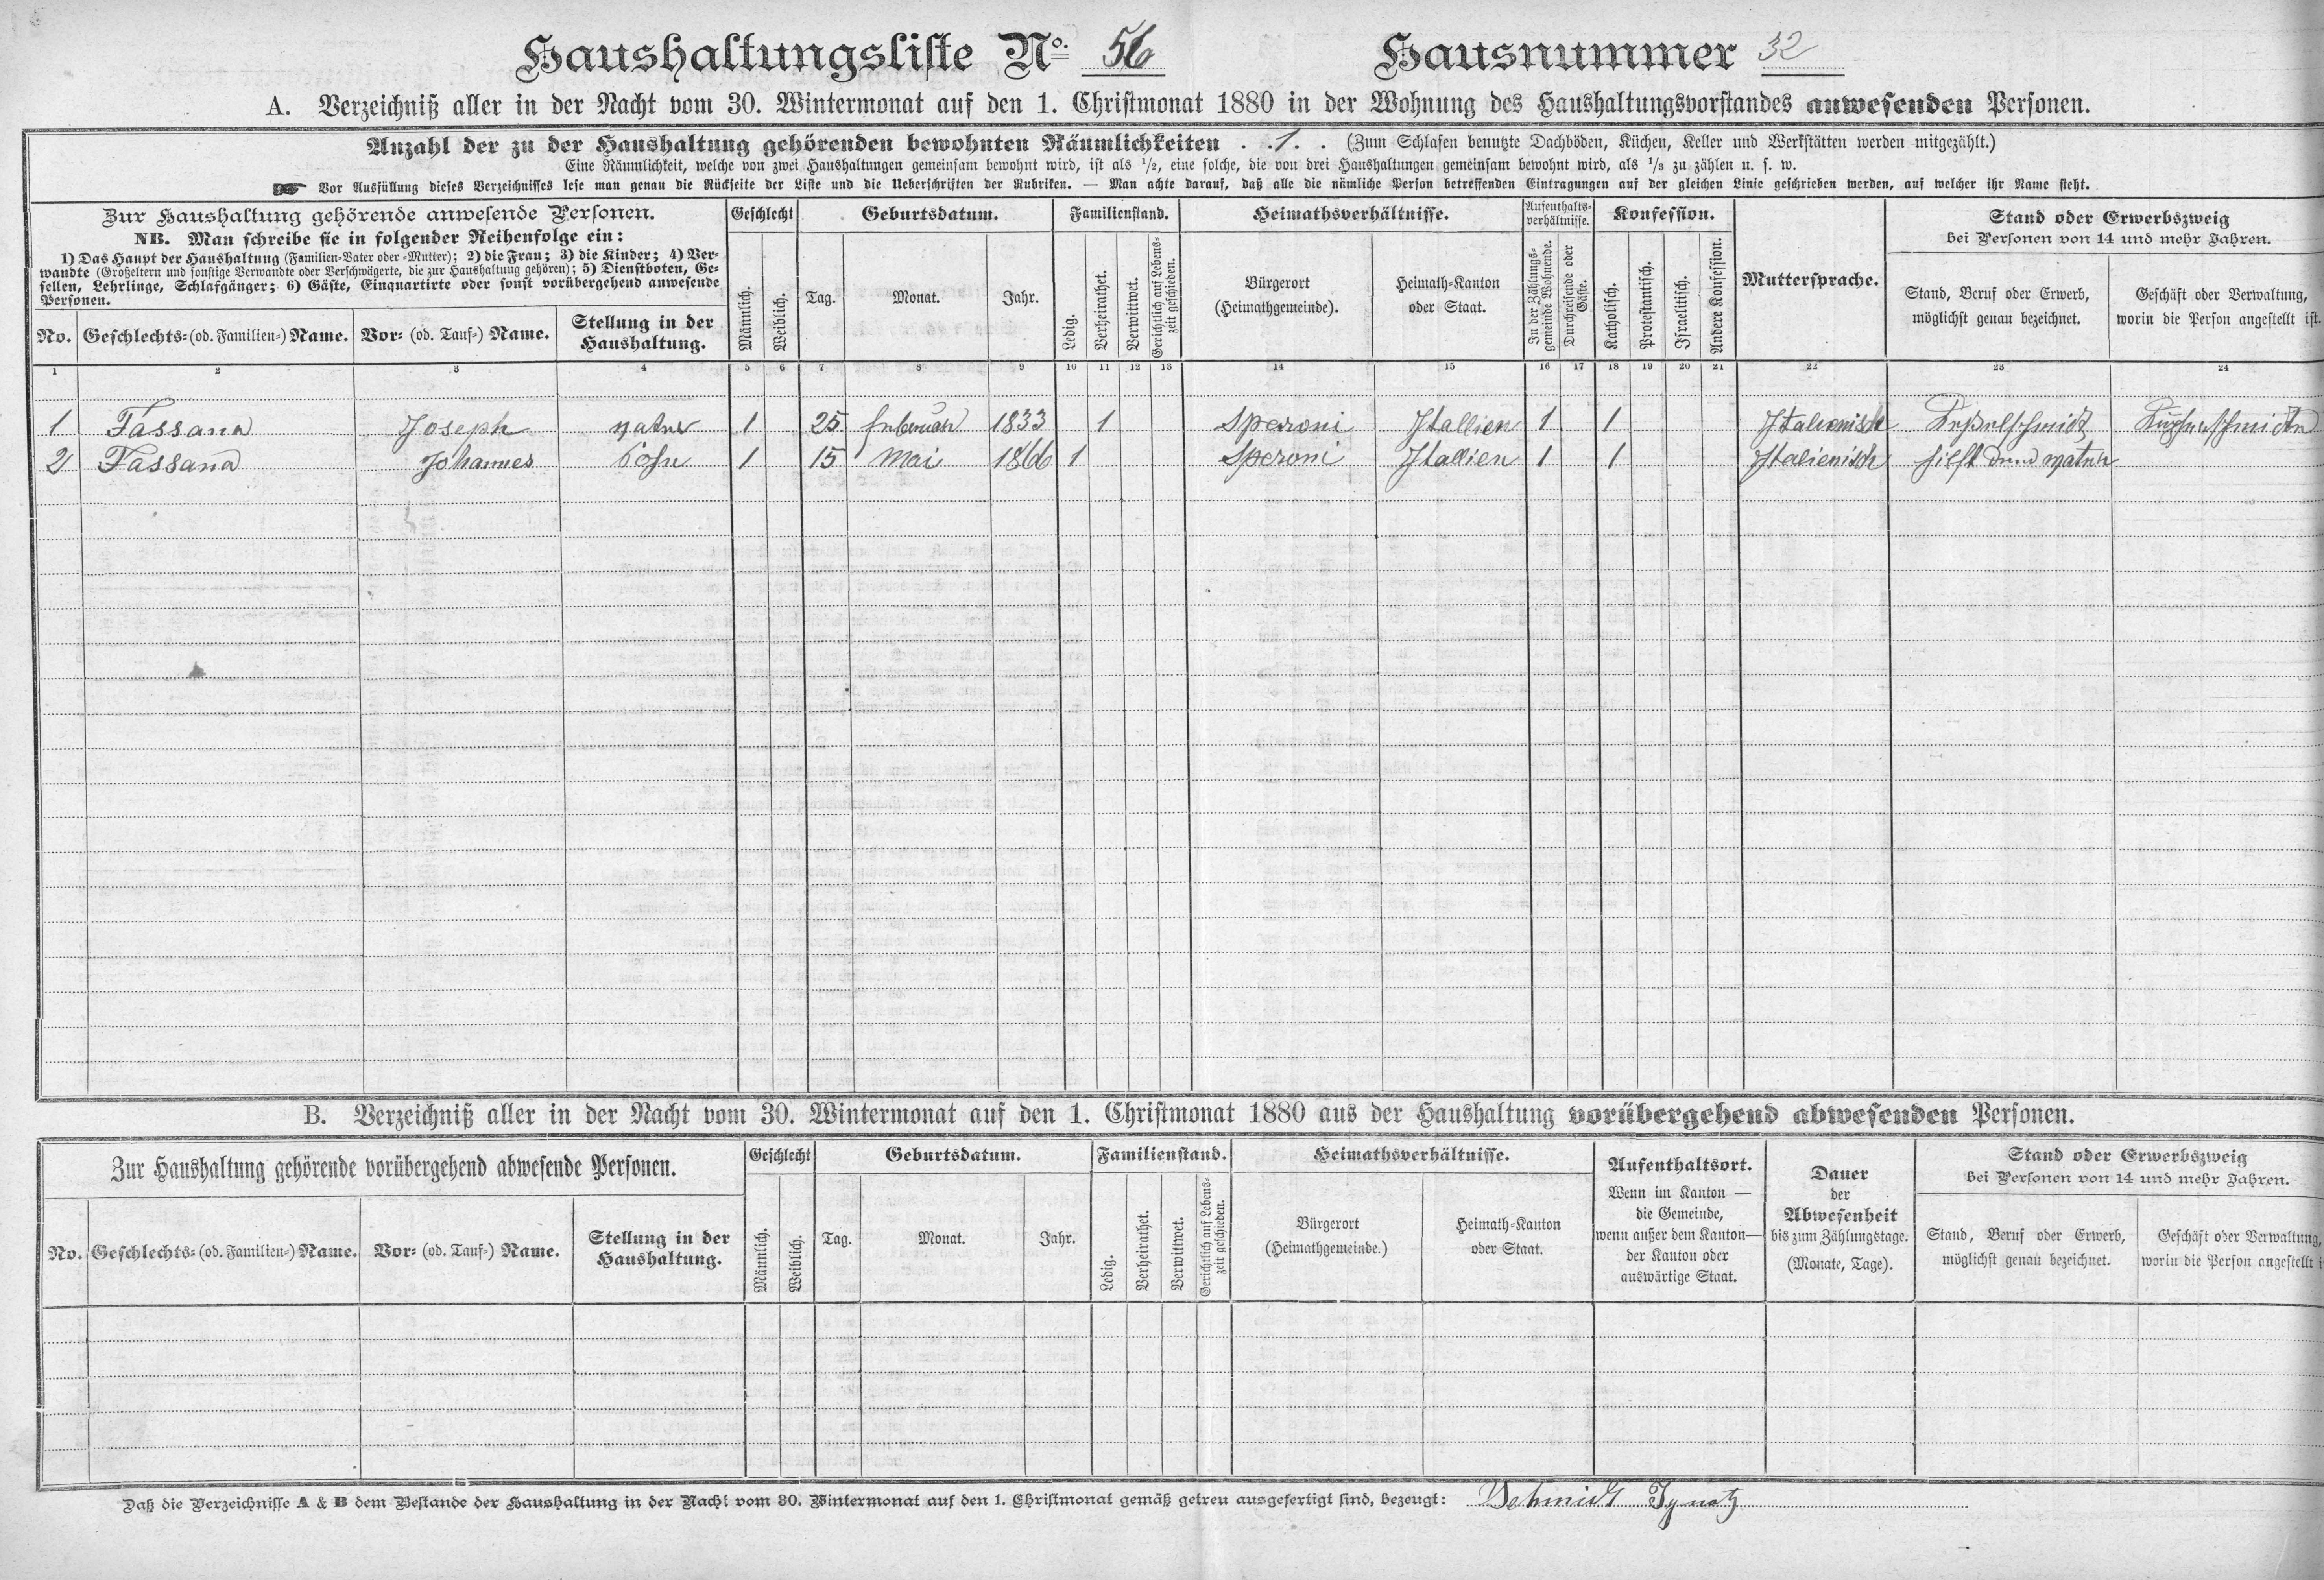 Haushaltungsliste No. 56 Hausnummer 32
A. Verzeichniß aller in der Nacht vom 30. Wintermonat auf den 1. Christmonat 1880 in der Wohnung des Haushaltungsvorstandes anwesenden Personen.
Anzahl der zu der Haushaltung gehörenden bewohnten Räumlichkeiten . .1. . (Zum Schlafen benutzte Dachböden, Küchen, Keller und Werkstätten werden mitgezählt.)
Eine Räumlichkeit, welche von zwei Haushaltungen gemeinsam bewohnt wird, ist als 1/2, eine solche, die von drei Haushaltungen gemeinsam bewohnt wird, als 1/3 zu zählen u. s. w.
☛ Vor Ausfüllung dieses Verzeichnisses lese man genau die Rückseite der Liste und die Ueberschriften der Rubriken. — Man achte darauf, daß alle die nämliche Person betreffenden Eintragungen auf der gleichen Linie geschrieben werden, auf welcher ihr Name steht.
Zur Haushaltung gehörende anwesende Personen.
NB. Man schreibe sie in folgender Reihenfolge ein:
1) Das Haupt der Haushaltung (Familien-Vater oder -Mutter); 2) die Frau; 3) die Kinder; 4) Ver-
wandte (Großeltern und sonstige Verwandte oder Verschwägerte, die zur Haushaltung gehören); 5) Dienstboten, Ge-
sellen, Lehrlinge, Schlafgänger; 6) Gäste, Einquartirte oder sonst vorübergehend anwesende
Personen.
No. Geschlechts- (od. Familien-) Name. Vor- (od. Tauf-) Name. Stellung in der
Haushaltung.
Geschlecht
Männlich. Weiblich.
Geburtsdatum.
Tag. Monat. Jahr.
Familienstand.
Ledig. Verheirathet. Verwittwet. Gerichtlich auf Lebens-
zeit geschieden.
Heimathsverhältnisse.
Bürgerort
(Heimathgemeinde).
Heimath-Kanton
oder Staat.
Aufenthalts-
verhältnisse.
In der Zählungs-
gemeinde Wohnende.
Durchreisende oder
Gäste.
Konfession.
Katholisch. Protestantisch. Israelitisch. Andere Konfession.
Muttersprache.
Stand oder Erwerbszweig
bei Personen von 14 und mehr Jahren.
Stand, Beruf oder Erwerb,
möglichst genau bezeichnet.
Geschäft oder Verwaltung,
worin die Person angestellt ist.
1 2 3 4 5 6 7 8 9 10 11 12 13 14 15 16 17 18 19 20 21 22 23 24
1 Fassana Joseph vater 1 25 februar 1833 1 Speroni Itallien 1 1 Italienisch Keßelschmidt
2 Fassana Johannes Sohn 1 15 Mai 1866 1 Speroni Itallien 1 1 Italienisch hilft dem vater
B. Verzeichniß aller in der Nacht vom 30. Wintermonat auf den 1. Christmonat 1880 aus der Haushaltung vorübergehend abwesenden Personen.
Zur Haushaltung gehörende vorübergehend abwesende Personen.
No. Geschlechts- (od. Familien-) Name. Vor- (od. Tauf-) Name. Stellung in der
Haushaltung.
Geschlecht
Männlich. Weiblich.
Geburtsdatum.
Tag. Monat. Jahr.
Familienstand.
Ledig. Verheirathet. Verwittwet. Gerichtlich auf Lebens-
zeit geschieden.
Heimathsverhältnisse.
Bürgerort
(Heimathgemeinde.)
Heimath-Kanton
oder Staat.
Aufenthaltsort.
Wenn im Kanton —
die Gemeinde,
wenn außer dem Kanton—
der Kanton oder
auswärtige Staat.
Dauer
der
Abwesenheit
bis zum Zählungstage.
(Monate, Tage).
Stand oder Erwerbszweig
bei Personen von 14 und mehr Jahren.
Stand, Beruf oder Erwerb,
möglichst genau bezeichnet.
Geschäft oder Verwaltung,
worin die Person angestellt i
Daß die Verzeichnisse A & B dem Bestande der Haushaltung in der Nacht vom 30. Wintermonat auf den 1. Christmonat gemäß getreu ausgefertigt sind, bezeugt: Schmidt Ignatz